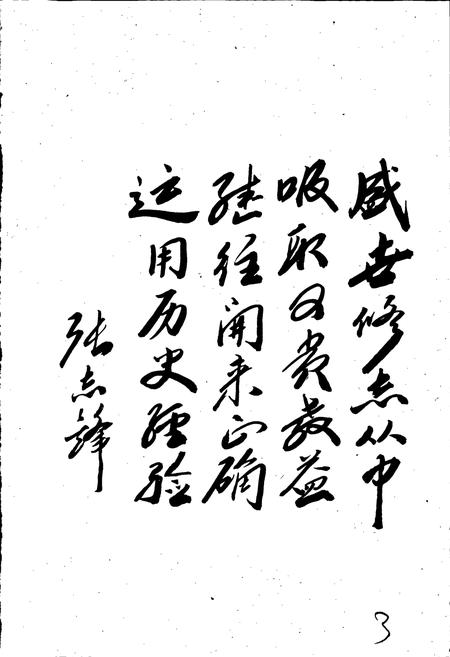 盛世修志从中
吸取可贵教益
继往開来正确
运用历史经验
张志锋
3